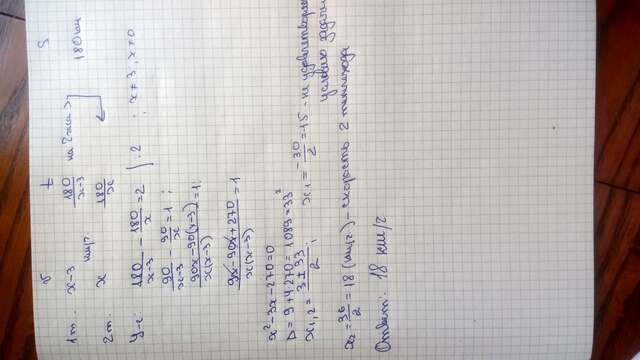 v t S
1т. x-3 180/x-3 на 2 часа > 180 км
км/ч
2т. x 180/x
Ур-е: 180/x-3 - 180/x = 2 | :2 ; x≠3, x≠0
90/x-3 - 90/x = 1;
90x-90(x-3)/x(x-3) = 1;
90x-90x+270/x(x-3) = 1
x²-3x-270=0
D = 9+4·270 = 1089 = 33²
x1,2 = 3±33/2; x1 = -30/2 = -15 - не удовлетворяет
условию задачи
x2 = 36/2 = 18 (км/ч) - скорость 2 теплохода
Ответ: 18 км/ч